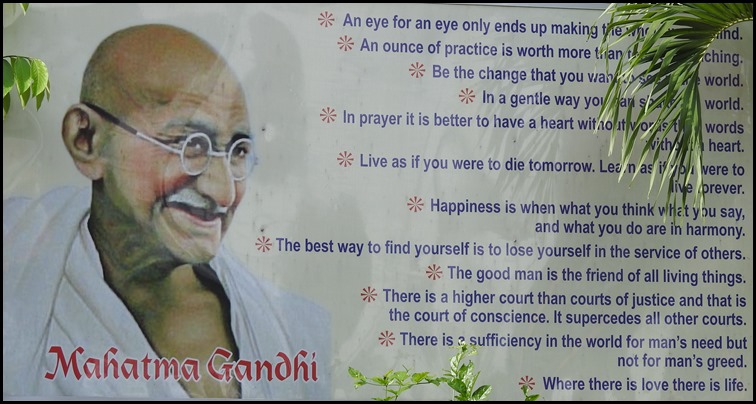 An eye for an eye only ends up making the
An ounce of practice is worth more than
Be the change that you want to see world.
In a gentle way you can world.
In prayer it is better to have a heart without words
without a heart.
Live as if you were to die tomorrow. Learn as if you were to
live forever.
Happiness is when what you think what you say,
and what you do are in harmony.
The best way to find yourself is to lose yourself in the service of others.
The good man is the friend of all living things.
There is a higher court than courts of justice and that is
the court of conscience. It supercedes all other courts.
There is a sufficiency in the world for man's need but
not for man's greed.
Where there is love there is life.
Mahatma Gandhi